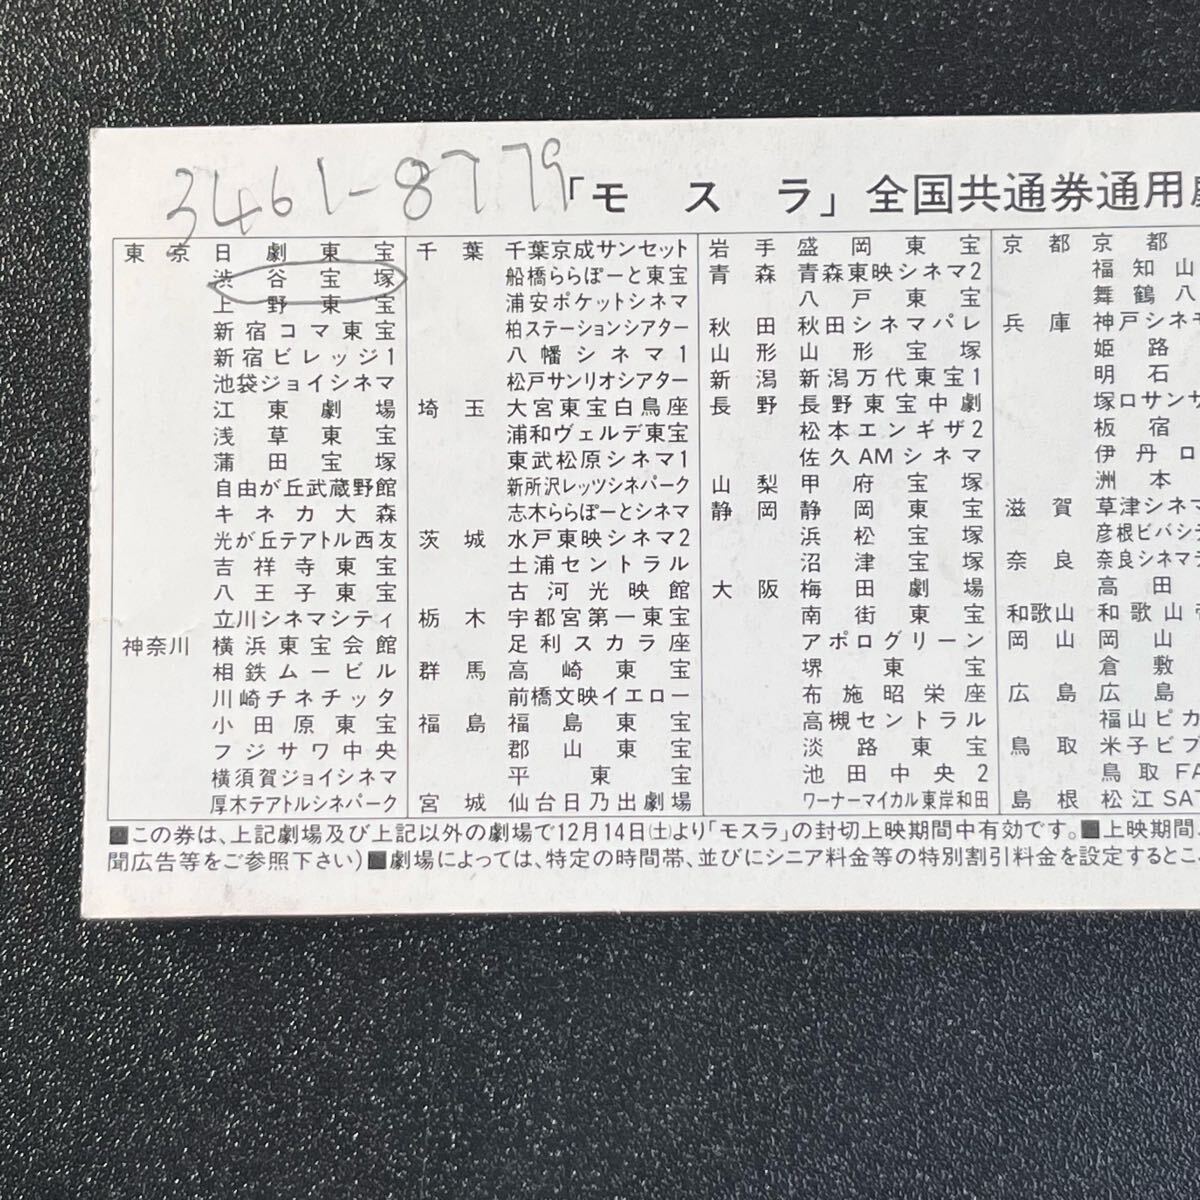 3461-8779
「モスラ」全国共通券通用劇
東京 日劇東宝
渋谷宝塚
上野東宝
新宿コマ東宝
新宿ビレッジ1
池袋ジョイシネマ
江東劇場
浅草東宝
蒲田宝塚
自由が丘武蔵野館
キネカ大森
光が丘テアトル西友
吉祥寺東宝
八王子東宝
立川シネマシティ
神奈川 横浜東宝会館
相鉄ムービル
川崎チネチッタ
小田原東宝
フジサワ中央
横須賀ジョイシネマ
厚木テアトルシネパーク
千葉 千葉京成サンセット
船橋ららぽーと東宝
浦安ポケットシネマ
柏ステーションシアター
八幡シネマ1
松戸サンリオシアター
埼玉 大宮東宝白鳥座
浦和ヴェルデ東宝
東武松原シネマ1
新所沢レッツシネパーク
志木ららぽーとシネマ
茨城 水戸東映シネマ2
土浦セントラル
古河光映館
栃木 宇都宮第一東宝
足利スカラ座
群馬 高崎東宝
前橋文映イエロー
福島 福島東宝
郡山東宝
平東宝
宮城 仙台日乃出劇場
岩手 盛岡東宝
青森 青森東映シネマ2
八戸東宝
秋田 秋田シネマパレ
山形 山形宝塚
新潟 新潟万代東宝1
長野 長野東宝中劇
松本エンギザ2
佐久AMシネマ
山梨 甲府宝塚
静岡 静岡東宝
浜松宝塚
沼津宝塚
大阪 梅田劇場
南街東宝
アポログリーン
堺東宝
布施昭栄座
高槻セントラル
淡路東宝
池田中央2
ワーナーマイカル東岸和田
京都 京都
福知山
舞鶴八
兵庫 神戸シネモ
姫路
明石
塚口サンサ
板宿
伊丹ロ
洲本
滋賀 草津シネマ
彦根ビバシテ
奈良 奈良シネマデ
高田
和歌山 和歌山帝
岡山 岡山
倉敷
広島 広島
福山ピカ
鳥取 米子ビブ
鳥取FA
島根 松江SAT
■この券は、上記劇場及び上記以外の劇場で12月14日(土)より「モスラ」の封切上映期間中有効です。■上映期間
聞広告等をご参照下さい)■劇場によっては、特定の時間帯、並びにシニア料金等の特別割引料金を設定するとこ